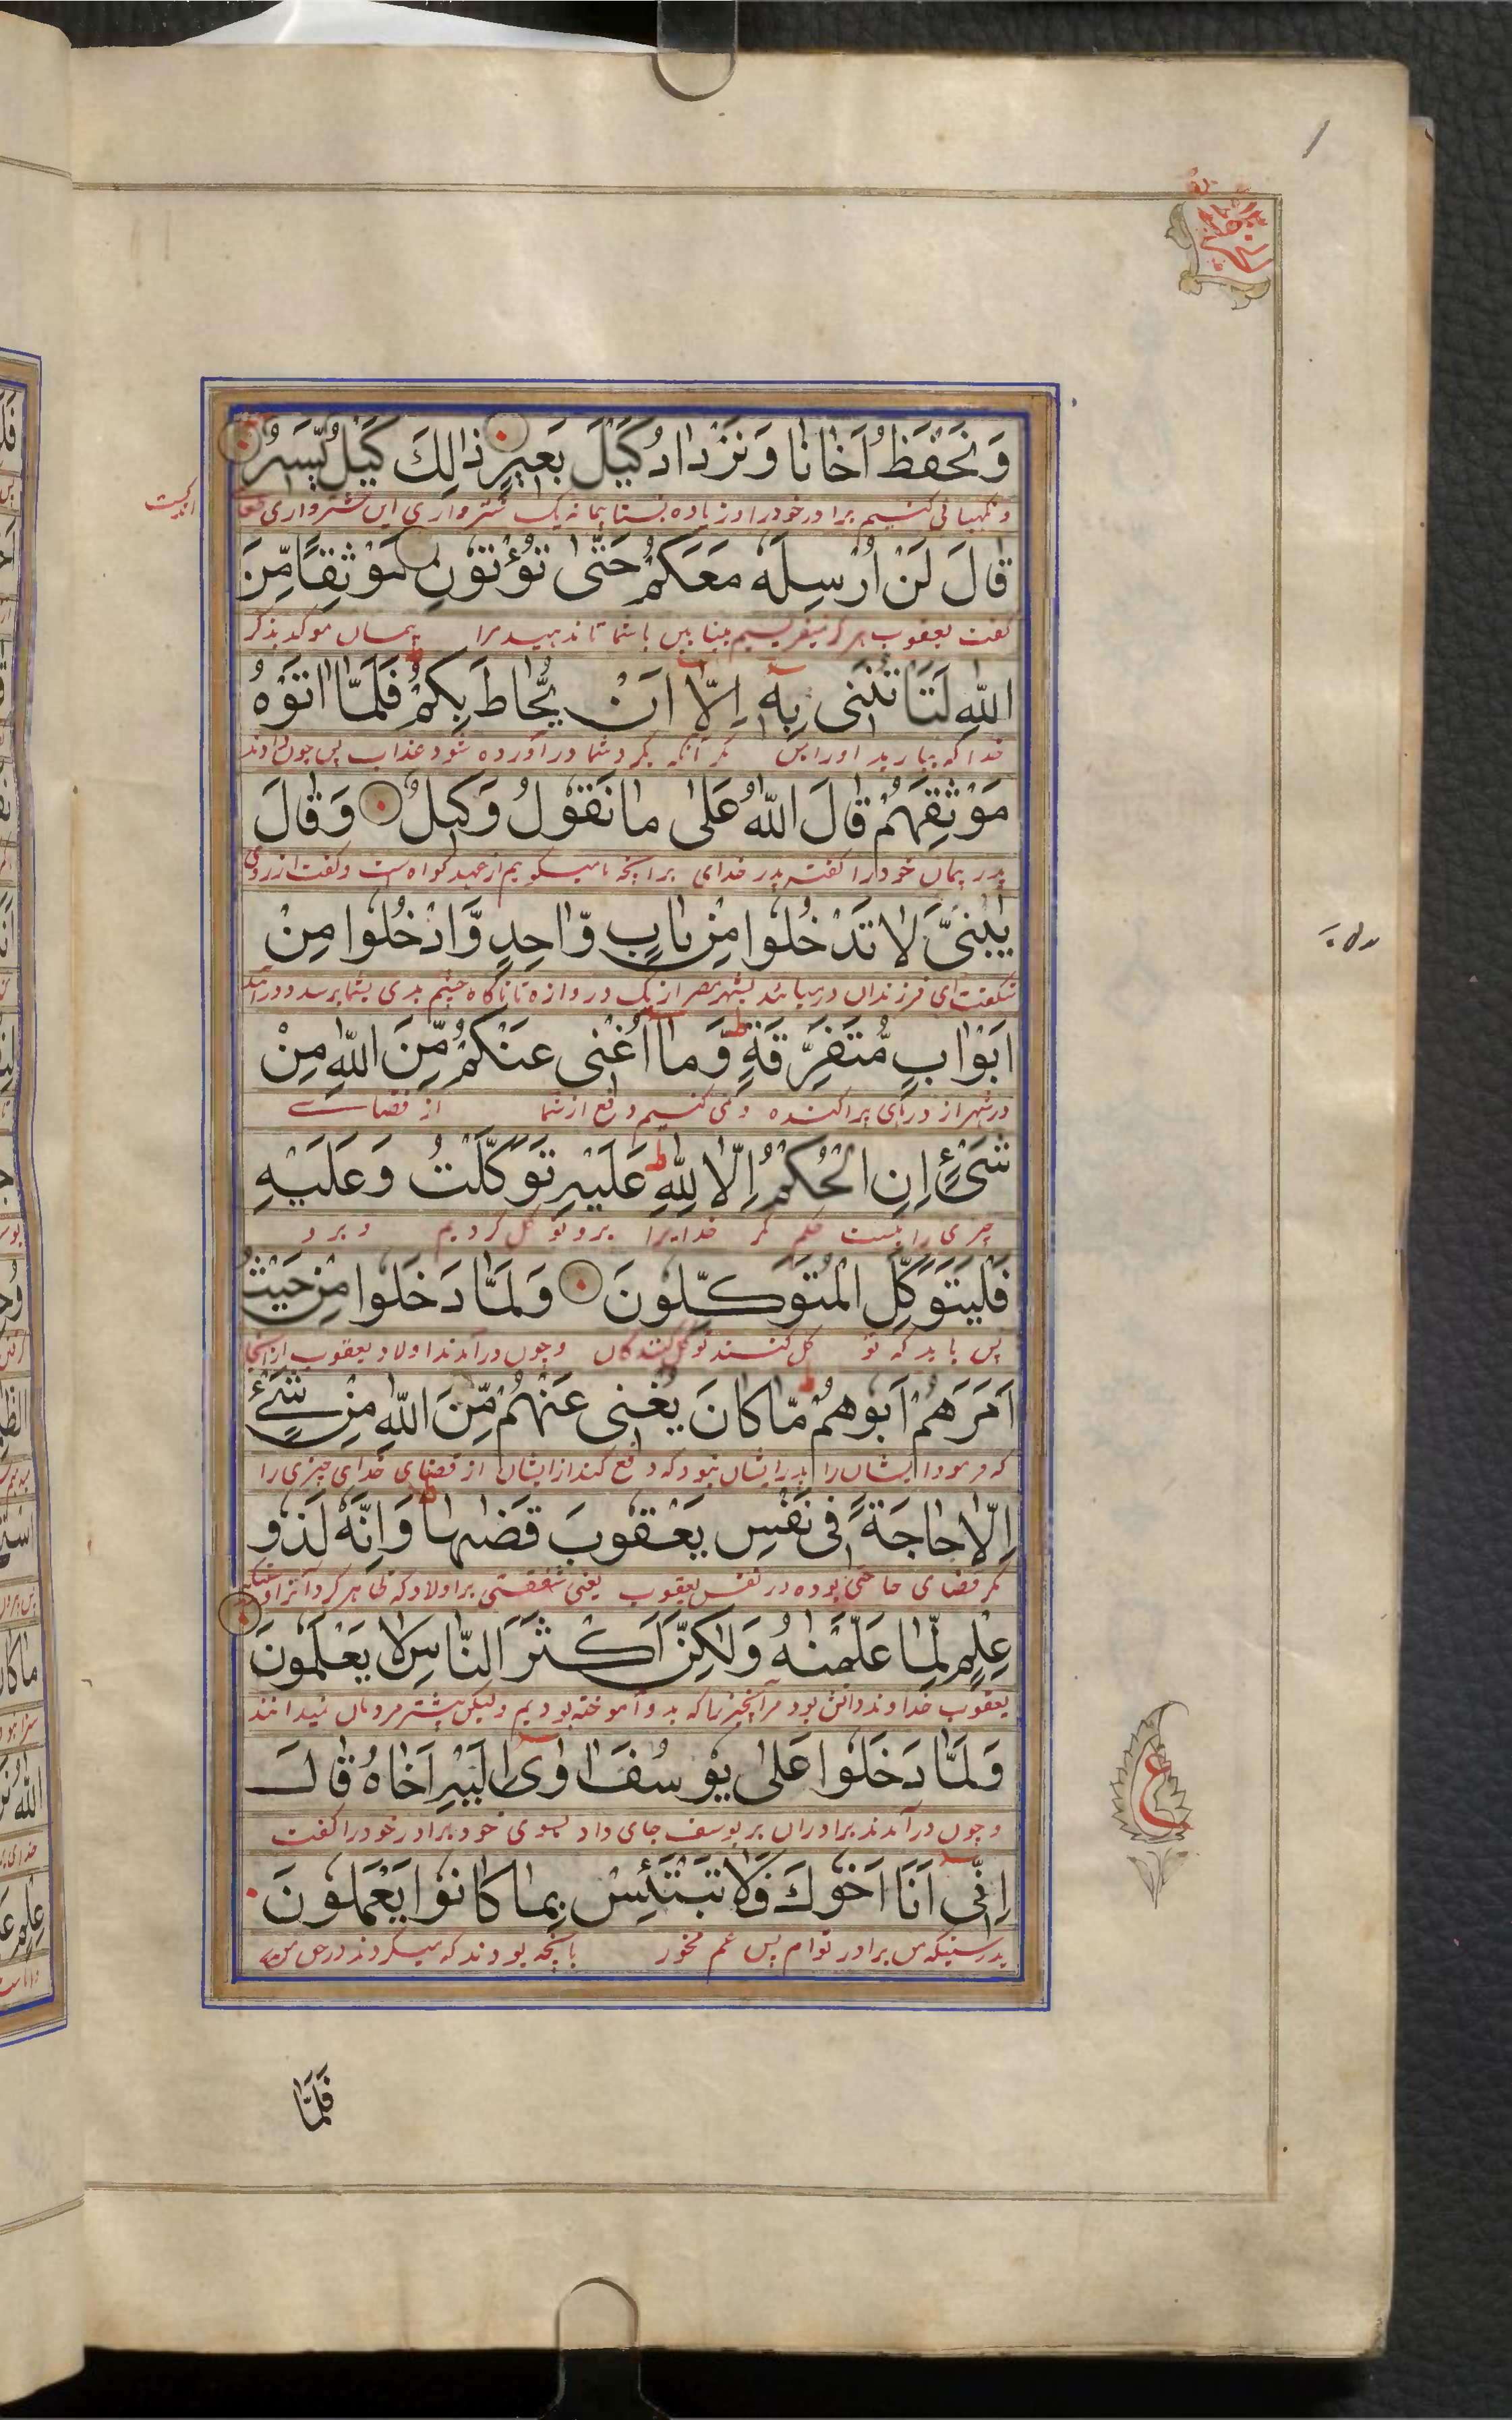 وَنَحْفَظُ اَخَانَا وَنَزْدَادُ كَيْلَ بَعِيْرٍ ذَالِكَ كَيْلٌ يَّسِيْرٌ
و نگهبانی کنیم برادر خود را و زیاده بستانیم پیمانه یک شتر واری این شتر واری
قَالَ لَنْ اُرْسِلَهٗ مَعَكُمْ حَتّٰى تُؤْتُوْنِ مَوْثِقًا مِّنَ
گفت یعقوب هرگز نیفریسیم بنیامین با شما تا ندهید مرا پیمان موکد بذکر
اللّٰهِ لَتَاْتُنَّنِىْ بِهٖ اِلَّا اَنْ يُّحَاطَ بِكُمْ فَلَمَّا اٰتَوْهُ
خدا که بیارید او را بمن مگر آنکه گرد شما در آورده شود عذاب پس چون دادند
مَوْثِقَهُمْ قَالَ اللّٰهُ عَلٰى مَا نَقُوْلُ وَكِيْلٌ وَقَالَ
پدر پیمان خود را گفت پدر خدای بر آنچه ما میگوییم از عهد گواه است و گفت از روی
يٰبَنِىَّ لَا تَدْخُلُوْا مِنْ بَابٍ وَّاحِدٍ وَّادْخُلُوْا مِنْ
شفقت ای فرزندان در میائید بشهر مصر از یک دروازه تا ناگاه چشم بدی بشما برسد و در آئید
اَبْوَابٍ مُّتَفَرِّقَةٍ وَّمَا اُغْنِىْ عَنْكُمْ مِّنَ اللّٰهِ مِنْ
در شهر از درهای پراکنده و نمی کنیم دفع از شما از قضای
شَىْءٍ اِنِ الْحُكْمُ اِلَّا لِلّٰهِ عَلَيْهِ تَوَكَّلْتُ وَعَلَيْهِ
چیزی را نیست حکم مگر خدایرا برو توکل کردیم و برو
فَلْيَتَوَكَّلِ الْمُتَوَكِّلُوْنَ وَلَمَّا دَخَلُوْا مِنْ حَيْثُ
پس باید که توکل کنند توکل کنندگان و چون در آمدند اولاد یعقوب از آنجا
اَمَرَهُمْ اَبُوْهُمْ مَّا كَانَ يُغْنِىْ عَنْهُمْ مِّنَ اللّٰهِ مِنْ شَىْءٍ
که فرمود ایشان را پدر ایشان نبود که دفع کند از ایشان از قضای خدای چیزی را
اِلَّا حَاجَةً فِىْ نَفْسِ يَعْقُوْبَ قَضٰىهَا وَاِنَّهٗ لَذُوْ
مگر قضای حاجتی بوده در نفس یعقوب یعنی شفقتی بر اولاد که ظاهر کرد آنرا و
عِلْمٍ لِّمَا عَلَّمْنٰهُ وَلٰكِنَّ اَكْثَرَ النَّاسِ لَا يَعْلَمُوْنَ
یعقوب خداوند دانش بود مر آنچیز را که بدو آموخته بودیم ولیکن بیشتر مردمان نمیدانند
وَلَمَّا دَخَلُوْا عَلٰى يُوْسُفَ اٰوٰى اِلَيْهِ اَخَاهُ قَالَ
و چون در آمدند برادران بر یوسف جای داد بسوی خود برادر خود را گفت
اِنِّىْ اَنَا اَخُوْكَ فَلَا تَبْتَئِسْ بِمَا كَانُوْا يَعْمَلُوْنَ
بدرستیکه من برادر توام پس غم مخور بآنچه بودند که میکردند در حق
ع
فَلَمَّا